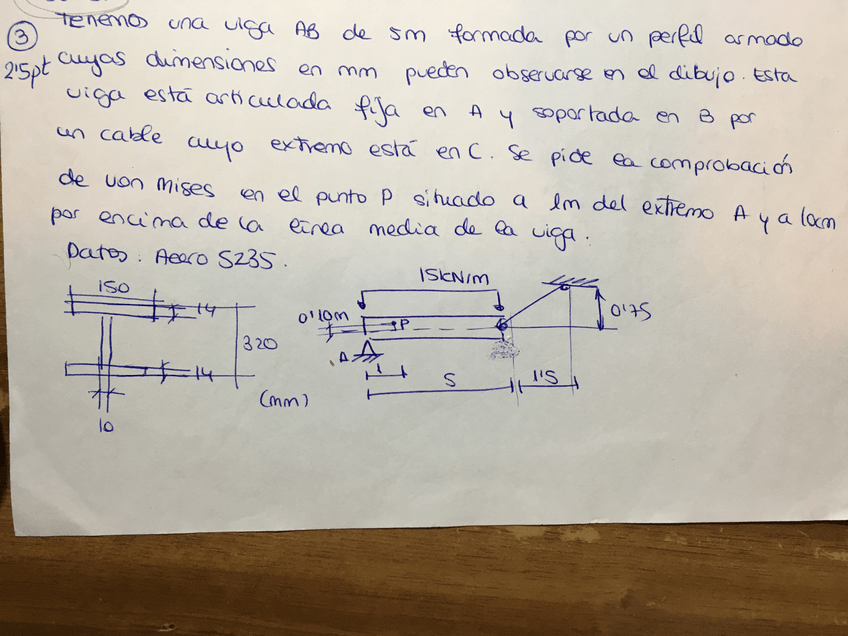 ③ Tenemos una viga AB de 5m formada por un perfil armado
2'5pt cuyas dimensiones en mm pueden observarse en el dibujo. Esta
viga está articulada fija en A y soportada en B por
un cable cuyo extremo está en C. Se pide la comprobación
de von Mises en el punto P situado a 1m del extremo A y a 10cm
por encima de la línea media de la viga.
Datos. Acero S235.
150
14
320
14
10
(mm)
15kN/m
0'10m
P
A
B
0'75
1
5
1'5